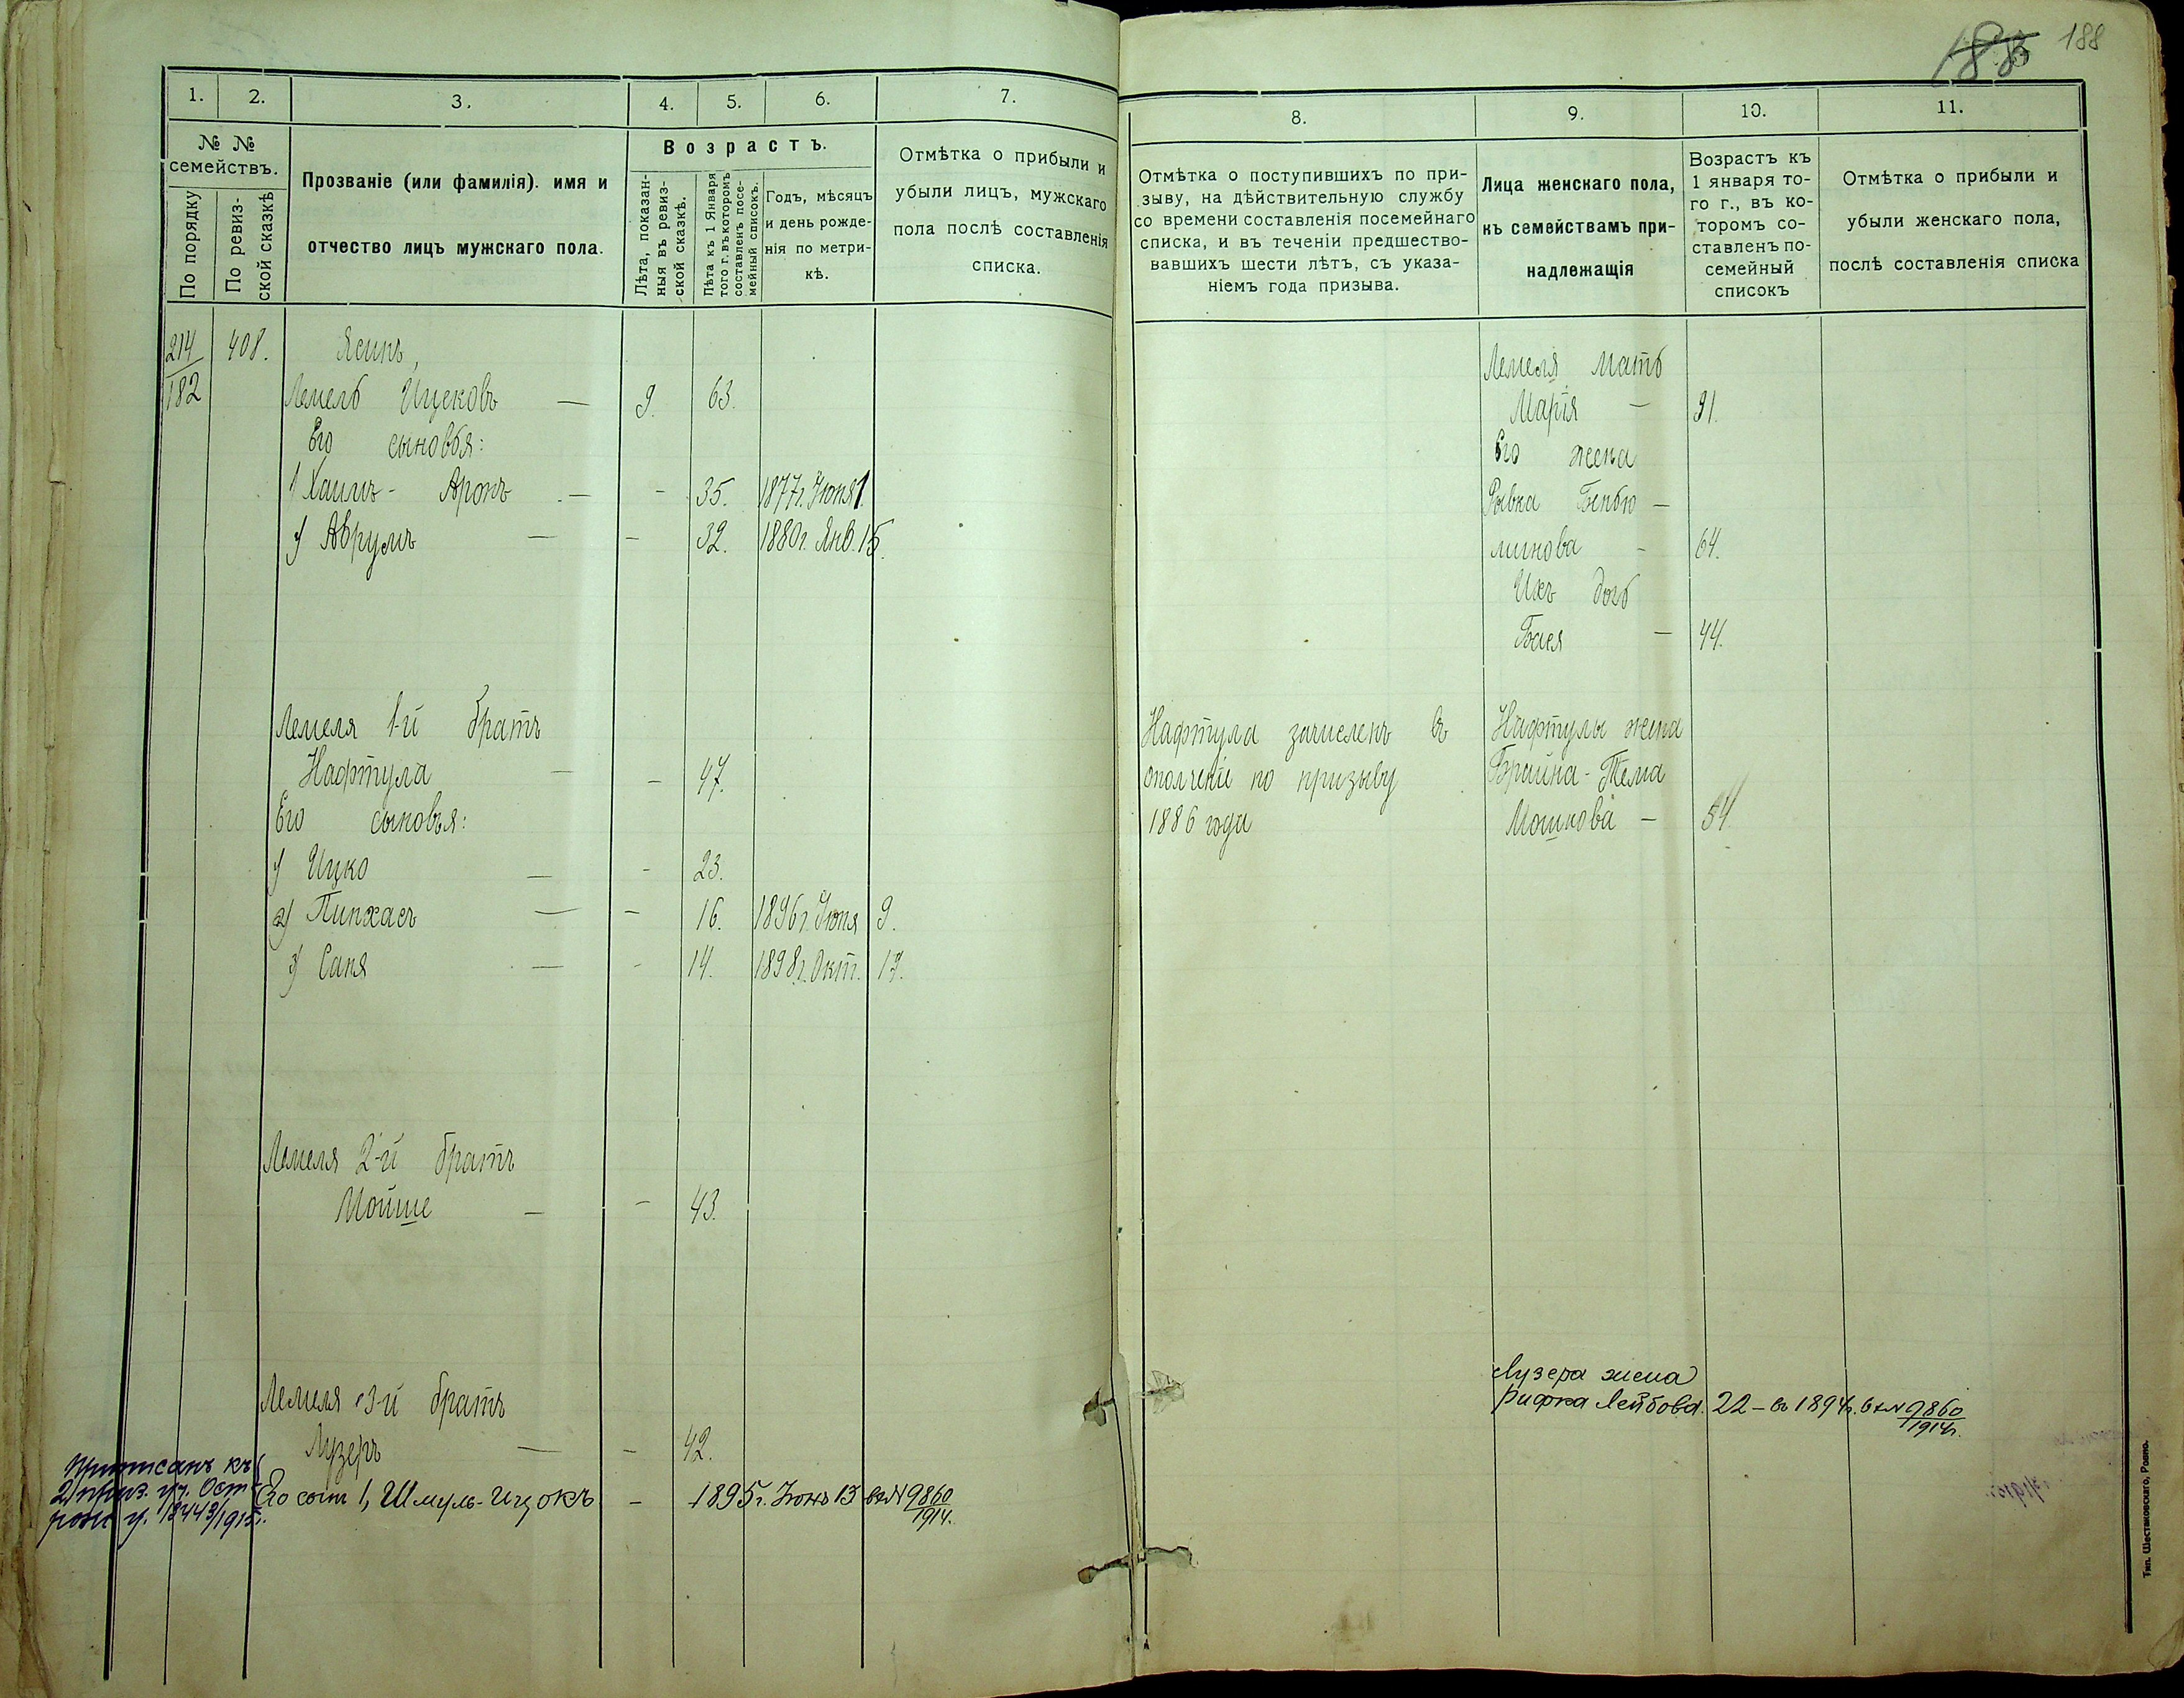 188
1.
2.
3.
4.
5.
6.
7.
№ №
семействъ.
По порядку
По ревиз-
ской сказкѣ
Прозваніе (или фамилія). имя и
отчество лицъ мужскаго пола.
Возрастъ.
Лѣта, показан-
ныя въ ревиз-
ской сказкѣ.
Лѣта къ 1 Января
того г. въ которомъ
составленъ посе-
мейный списокъ.
Годъ, мѣсяцъ
и день рожде-
нія по метри-
кѣ.
Отмѣтка о прибыли и
убыли лицъ, мужскаго
пола послѣ составленія
списка.
214 408. Ясинъ,
182 Лемель Ицковъ — 9. 63.
Его сыновья:
1 Хаимъ - Аронъ — - 35. 1877г. Іюня 1.
Аврумъ — - 32. 1880г. Янв. 15.
Лемеля 1-й братъ
Нафтула — - 47.
Его сыновья:
1) Ицко — - 23.
2) Пинхасъ — - 16. 1896г. Іюня 9.
3) Саня — - 14. 1898г. Окт. 17.
Лемеля 2-й братъ
Мойше — - 43.
Лемеля 3-й братъ
Лузеръ — - 42.
Его сынъ 1, Шмуль-Ицокъ - 1895г. Іюнь 13 вх№ 9860
1914.
Приписанъ къ
2 приз. уч. Ост-
рож. у. 18443/1915г.
8.
9.
10.
11.
Отмѣтка о поступившихъ по при-
зыву, на дѣйствительную службу
со времени составленія посемейнаго
списка, и въ теченіи предшество-
вавшихъ шести лѣтъ, съ указа-
ніемъ года призыва.
Лица женскаго пола,
къ семействамъ при-
надлежащія
Возрастъ къ
1 января то-
го г., въ ко-
торомъ со-
ставленъ по-
семейный
списокъ
Отмѣтка о прибыли и
убыли женскаго пола,
послѣ составленія списка
Лемеля мать
Марія — 91.
Его жена
Рывка Беньо —
минова - 64.
Ихъ дочь
Бася — 44.
Нафтула зачисленъ въ Нафтулы жена
ополченіе по призыву Брайна - Тема
1886 года Мошкова — 54
Лузера жена
Рифка Лейбова. 22 – въ 1894г. вх№ 9860
1914г.
Тип. Шестаковскаго, Ровно.